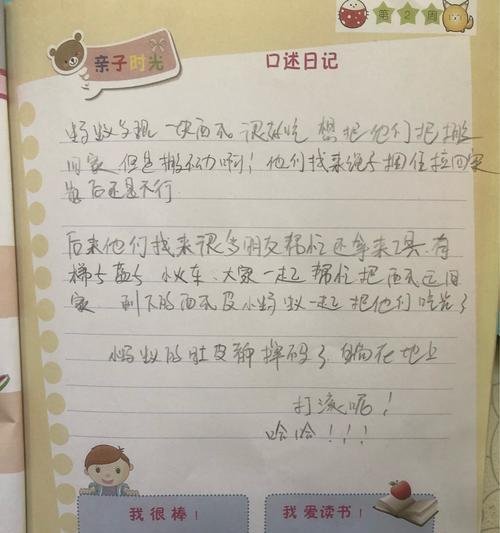 第2周
亲子时光
口述日记
蚂蚁发现一块西瓜 很好吃 想把他们把搬
回家 但是搬不动啊！他们找来绳子捆住拉回家
最后还是不行
后来他们找来很多朋友帮忙还拿来工具.有
梯子 篮子 小火车、大家一起帮忙把西瓜运回
家 剩下的西瓜皮小蚂蚁一起把他们吃光了
小蚂蚁的肚皮都撑破了 躺在地上
打滚呢！
哈哈！！！
我很棒！
我爱读书！